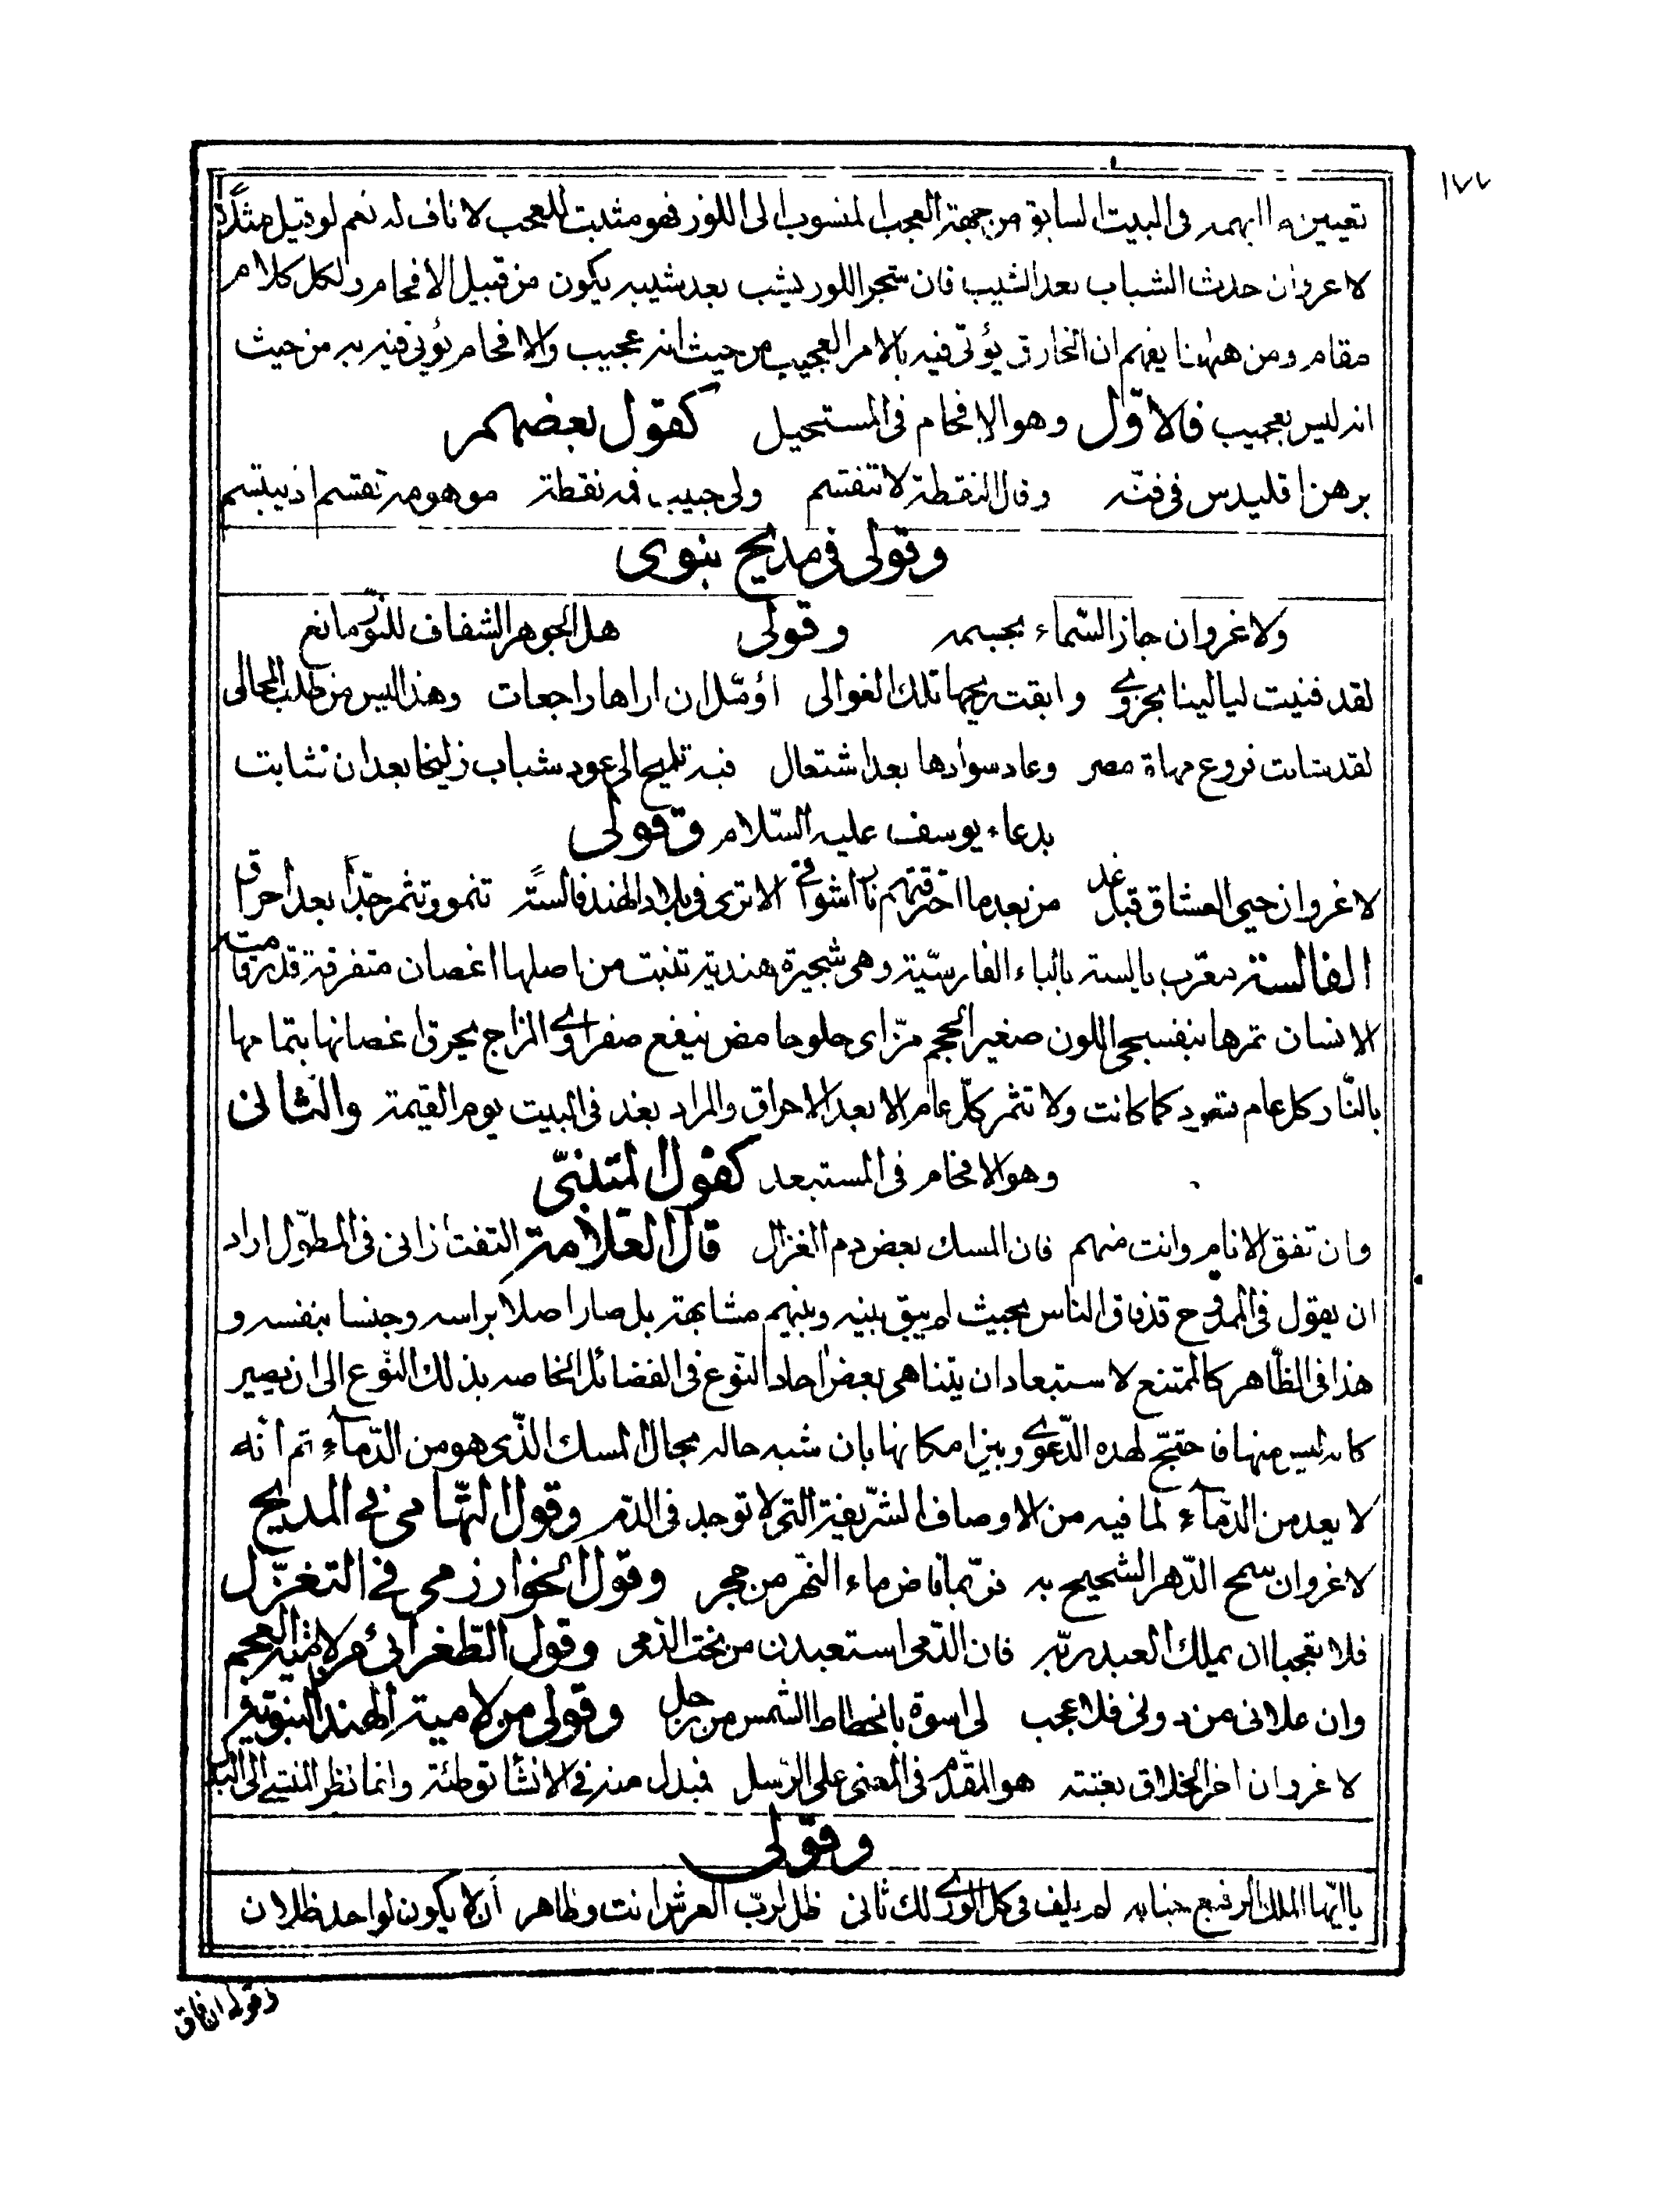 ١٧٧
تعيين ما ابهمه فى البيت السابق من جهة العجب المنسوب الى اللوز فهو مثبت للعجب لا ناف له نعم لو قيل مثلاً
لا غروان حدث الشباب بعد الشيب فان شجر اللوز يشب بعد شيبه يكون من قبيل الافحام ولكل كلام
مقام ومن ههنا يفهم ان الخارق يؤتى فيه بالامر العجيب من حيث انه عجيب والافحام يؤتى فيه به من حيث
انه ليس بعجيب فالاوّل وهو الافحام فى المستحيل كقول بعضهم
برهن اقليدس فى فنّه وقال النقطة لا تنقسم ولى حبيب فمه نقطة موهومة تقسم اذ يبتسم
وقولى فى مديح نبوى
ولا غروان جاز السّماء بجسمه وقولى هل الجوهر الشفاف للنور مانع
لقد فنيت ليالينا بحزوى وابقت ريحها تلك الغوالى أؤمّل ان اراها راجعات وهذا ليس من طلب المحال
لقد شابت فروع مهاة مصر وعاد سوادها بعد اشتعال فيه تلميح الى عود شباب زليخا بعد ان شابت
بدعاء يوسف عليه السّلام وقولى
لا غروان حيى العشاق قبل غد من بعد ما احترقتهم نار اشواق الا ترى فى بلاد الهند فالسةً تنمو وتثمر جدّا بعد احراق
الفالسة معرّب پالسه بالباء الفارسيّة وهى شجيرة هندية تنبت من اصلها اغصان متفرقة قدر قامة
الانسان ثمرها بنفسجى اللون صغير الحجم مزّ اى حلو حامض ينفع صفراوى المزاج يحرق اغصانها بتمامها
بالنّار كل عام فتعود كما كانت ولا تثمر كلّ عام الا بعد الاحراق والمراد بغد فى البيت يوم القيمة والثانى
وهو الافحام فى المستبعد كقول المتنبّى
وان تفق الانام وانت منهم فان المسك بعض دم الغزال قال العلّامة التفتازانى فى المطوّل اراد
ان يقول فى الممدوح قد فاق الناس بحيث لم يبق بينه وبينهم مشابهة بل صار اصلا براسه وجنسا بنفسه و
هذا فى الظّاهر كالممتنع لاستبعاد ان يتناهى بعض احاد النّوع فى الفضائل الخاصه بذلك النّوع الى ان يصير
كانه ليس منها فاحتجّ لهذه الدّعوى وبيّن امكانها بان شبه حاله بحال المسك الذّى هو من الدّماء ثم أنّه
لا يعد من الدّماء لما فيه من الاوصاف الشّريفة التى لا توجد فى الدّم وقول التّهامى فى المديح
لا غروان سمح الدّهر الشحيح به فربّما فاض ماء النّهر من حجر وقول الخوارزمى فى التغزّل
فلا تعجبا ان يملك العبد ربّه فان الدّمى استعبدن من نحت الدّمى وقول الطّغرائى من لامّية العجم
وان علانى من دونى فلا عجب لى اسوة بانحطاط الشمس من زحل وقولى من لامية الهند النبويّة
لا غروان اخر الخلاق بعثته هو المقدّم فى المعنى على الرّسل فبدل منه فى الانشا توطئة وانما نظر المنشى الى البدل
وقولى
يا ايّها الملك الرفيع جنابه لم يلف فى كل الورى لك ثانى ظل لربّ العرش انت وظاهر أن لا يكون لواحد ظلان
وقوله ان فاق